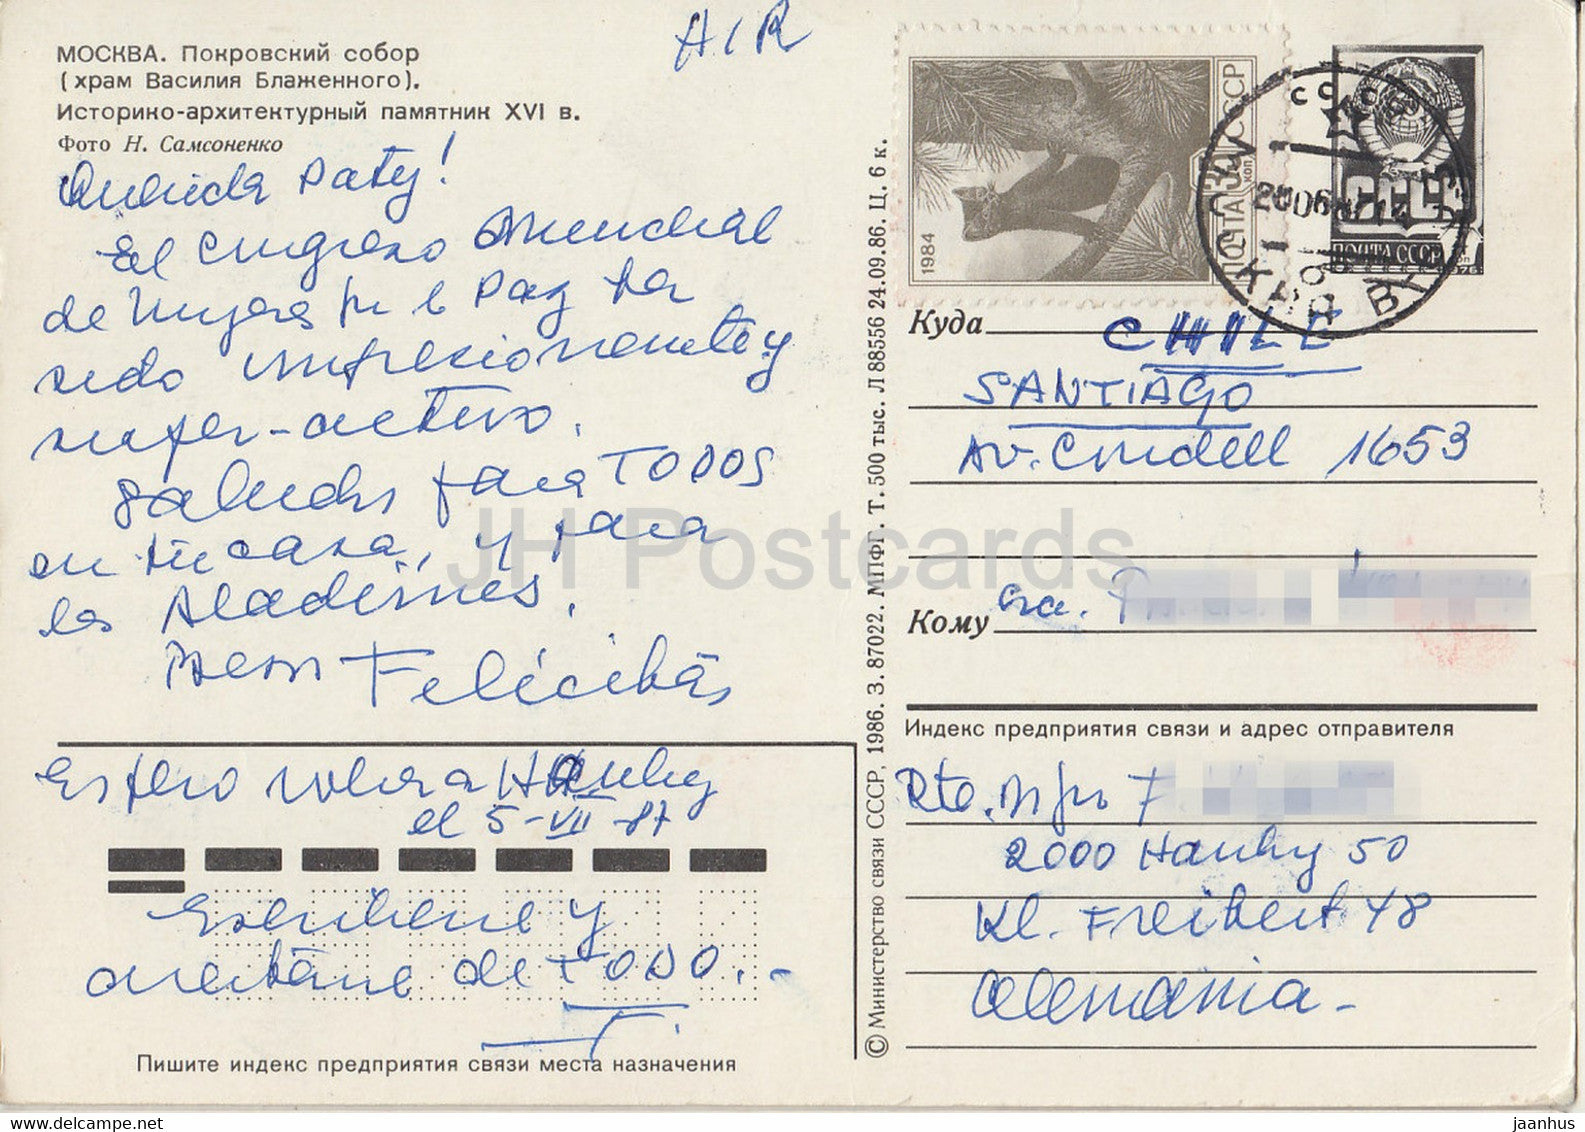 AIR
МОСКВА. Покровский собор
(храм Василия Блаженного).
Историко-архитектурный памятник XVI в.
Фото Н. Самсоненко
Querida Paty!
El Congreso Mundial
de Mujeres por la Paz ha
sido impresionante y
super-activo.
Saludos para TODOS
en tu casa, y para
los Académicos.
Besos Felicitás
Espero volver a Hamburg
el 5-VII-87
Escribeme y
cuentáme de TODO.-
F.
Пишите индекс предприятия связи места назначения
© Министерство связи СССР, 1986. З. 87022. МПФГ. Т. 500 тыс. Л 88556 24.09.86. Ц. 6 к.
1984
ПОЧТА СССР
35 КОП
СССР
МОСКВА
ПОЧТА СССР
Куда CHILE
SANTIAGO
Av. Condell 1653
Кому Sra.
Индекс предприятия связи и адрес отправителя
Rte.
2000 Hamburg 50
Kl. Freiheit 48
Alemania-
JH Postcards
delcampe.net
jaanhus